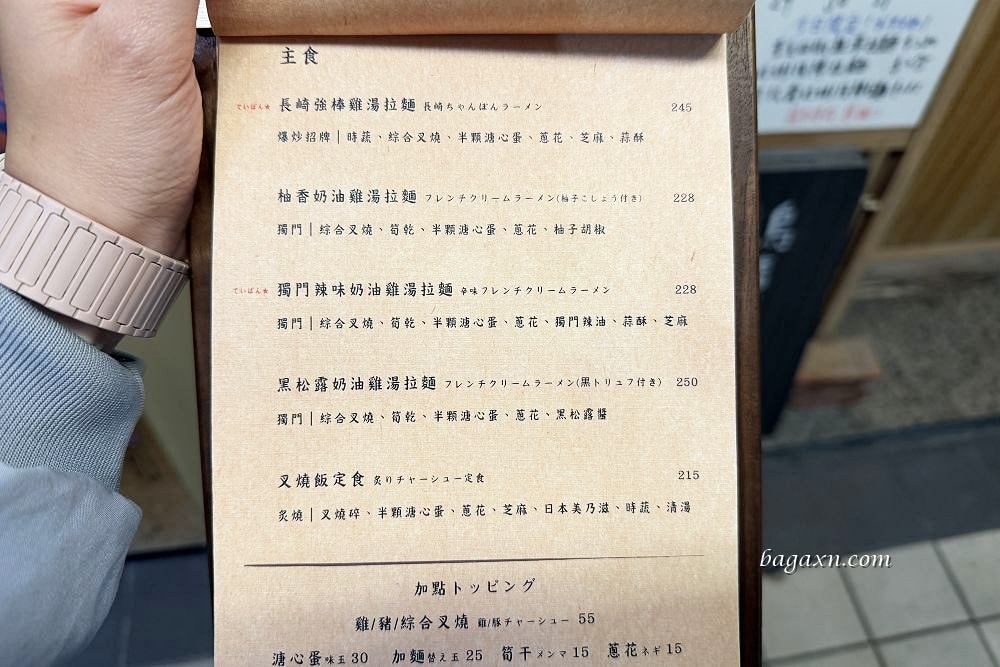 主食
ていばん★ 長崎強棒雞湯拉麵 長崎ちゃんぽんラーメン 245
爆炒招牌 | 時蔬、綜合叉燒、半顆溏心蛋、蔥花、芝麻、蒜酥
柚香奶油雞湯拉麵 フレンチクリームラーメン(柚子こしょう付き) 228
獨門 | 綜合叉燒、筍乾、半顆溏心蛋、蔥花、柚子胡椒
ていばん★ 獨門辣味奶油雞湯拉麵 辛味フレンチクリームラーメン 228
獨門 | 綜合叉燒、筍乾、半顆溏心蛋、蔥花、獨門辣油、蒜酥、芝麻
黑松露奶油雞湯拉麵 フレンチクリームラーメン(黒トリュフ付き) 250
獨門 | 綜合叉燒、筍乾、半顆溏心蛋、蔥花、黑松露醬
叉燒飯定食 炙りチャーシュー定食 215
炙燒 | 叉燒碎、半顆溏心蛋、蔥花、芝麻、日本美乃滋、時蔬、清湯
加點トッピング
雞/豬/綜合叉燒 鶏/豚チャーシュー 55
溏心蛋味玉 30 加麵替え玉 25 筍干メンマ 15 蔥花ネギ 15
bagaxn.com